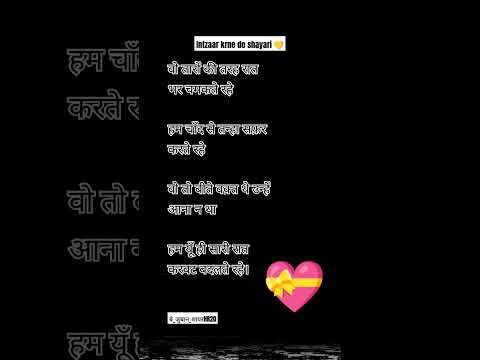 Intzaar krne do shayari 💛
वो तारों की तरह रात
भर चमकते रहे
हम चाँद से तन्हा सफ़र
करते रहे
वो तो बीते वक़्त थे उन्हें
आना न था
हम यूँ ही सारी रात
करवट बदलते रहे।
बे_जुबान_शायरHR20
हम चाँद
करते रहे
वो तो बी
आना न
हम यूँ